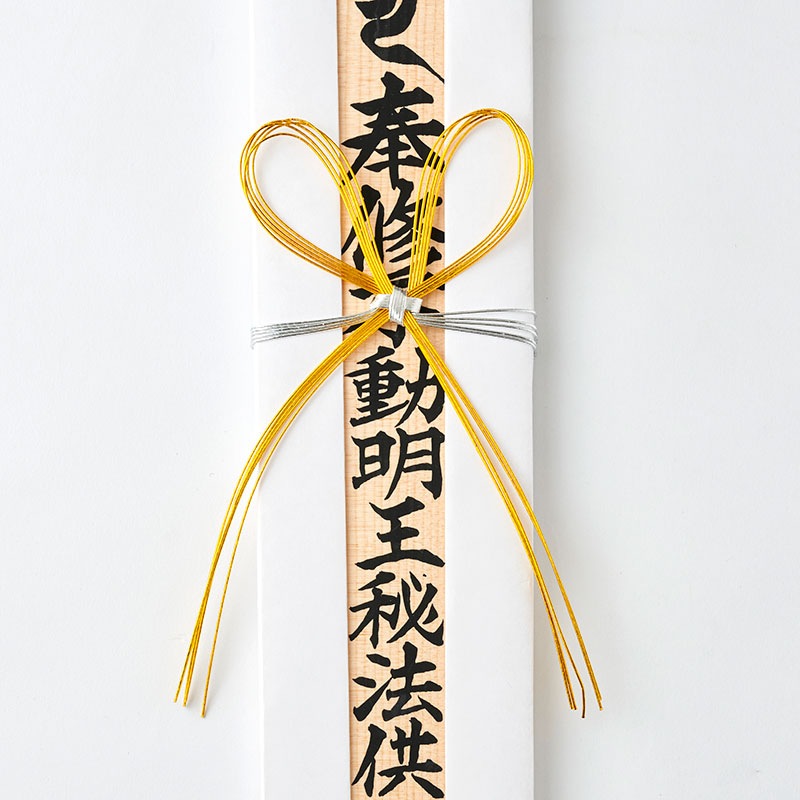 奉修不動明王秘法供